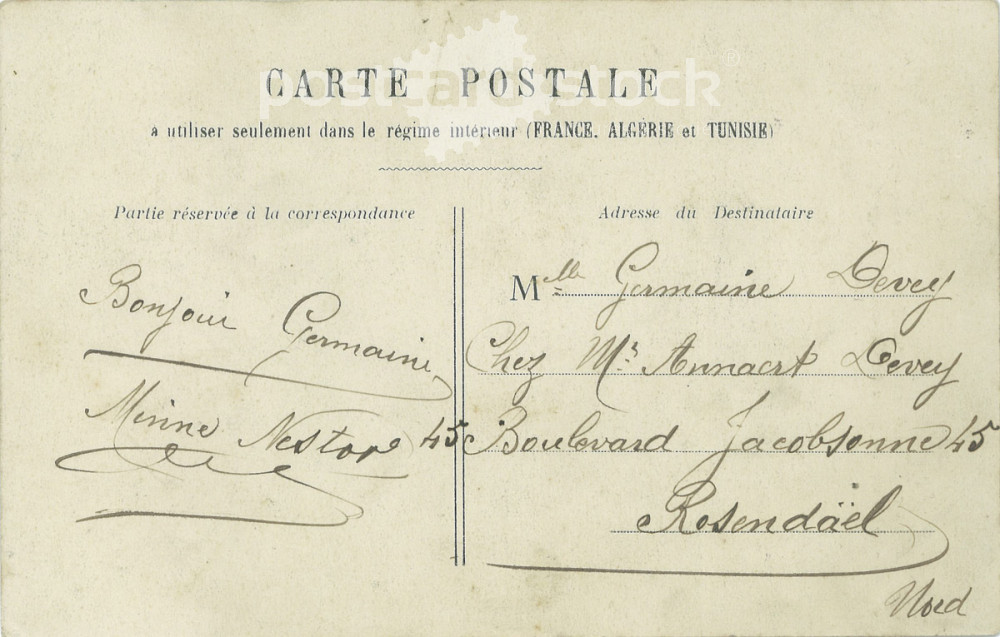 CARTE POSTALE
postcard stock®
à utiliser seulement dans le régime intérieur (FRANCE. ALGÉRIE et TUNISIE)
Partie réservée à la correspondance
Bonjour Germaine
Minne Nestor 45
Adresse du Destinataire
Melle Germaine Devey
Chez Mr Annaert Devey
Boulevard Jacobsonne 45
Rosendäel
Nord